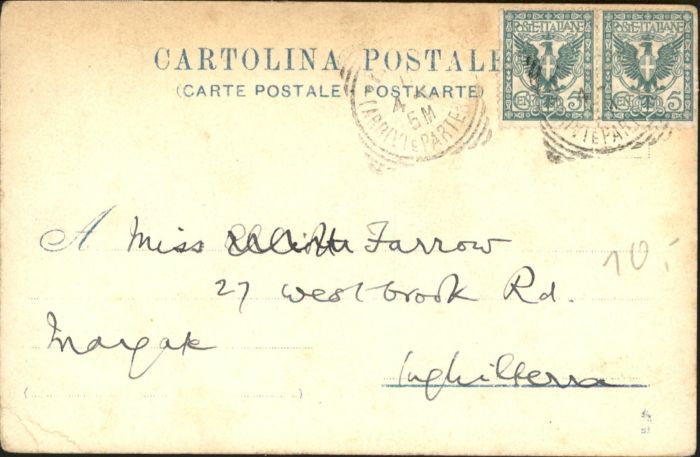 CARTOLINA POSTALE
(CARTE POSTALE POSTKARTE)
POSTE ITALIANE
CENT 5
POSTE ITALIANE
CENT 5
5M
(ARRIVI E PARTEN
A Miss Farrow
27 Westbrook Rd.
Margate
Inghilterra
10.-